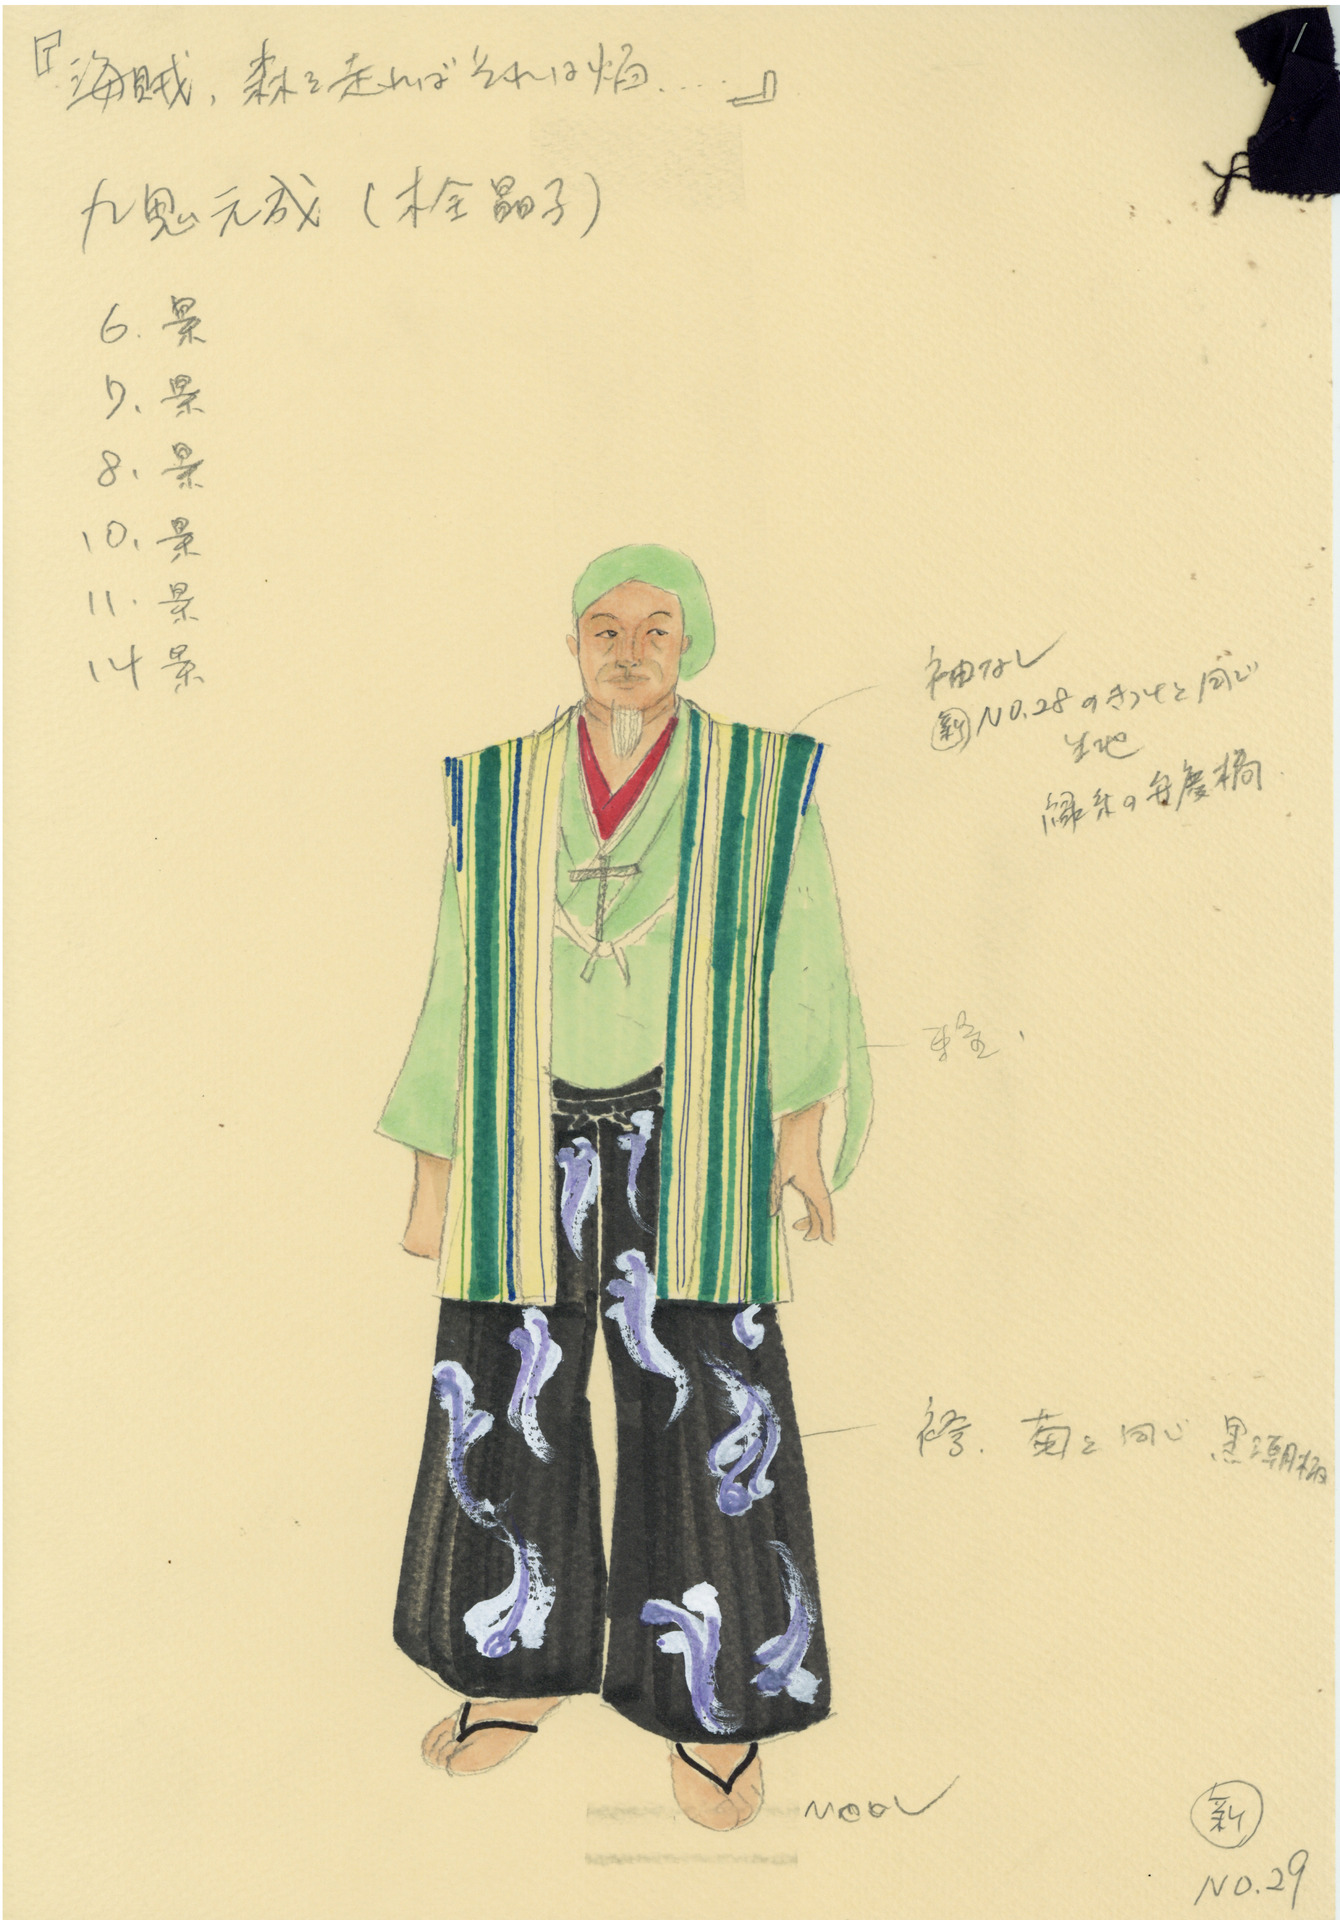 『海賊、森を走ればそれは焔……』
九鬼元成(木全晶子)
6. 景
7. 景
8. 景
10. 景
11. 景
14 景
袖なし
新 NO.28のきつけと同じ
生地
緑糸の弁慶橋
袴. 菊と同じ 黒潮柄
新
NO.29